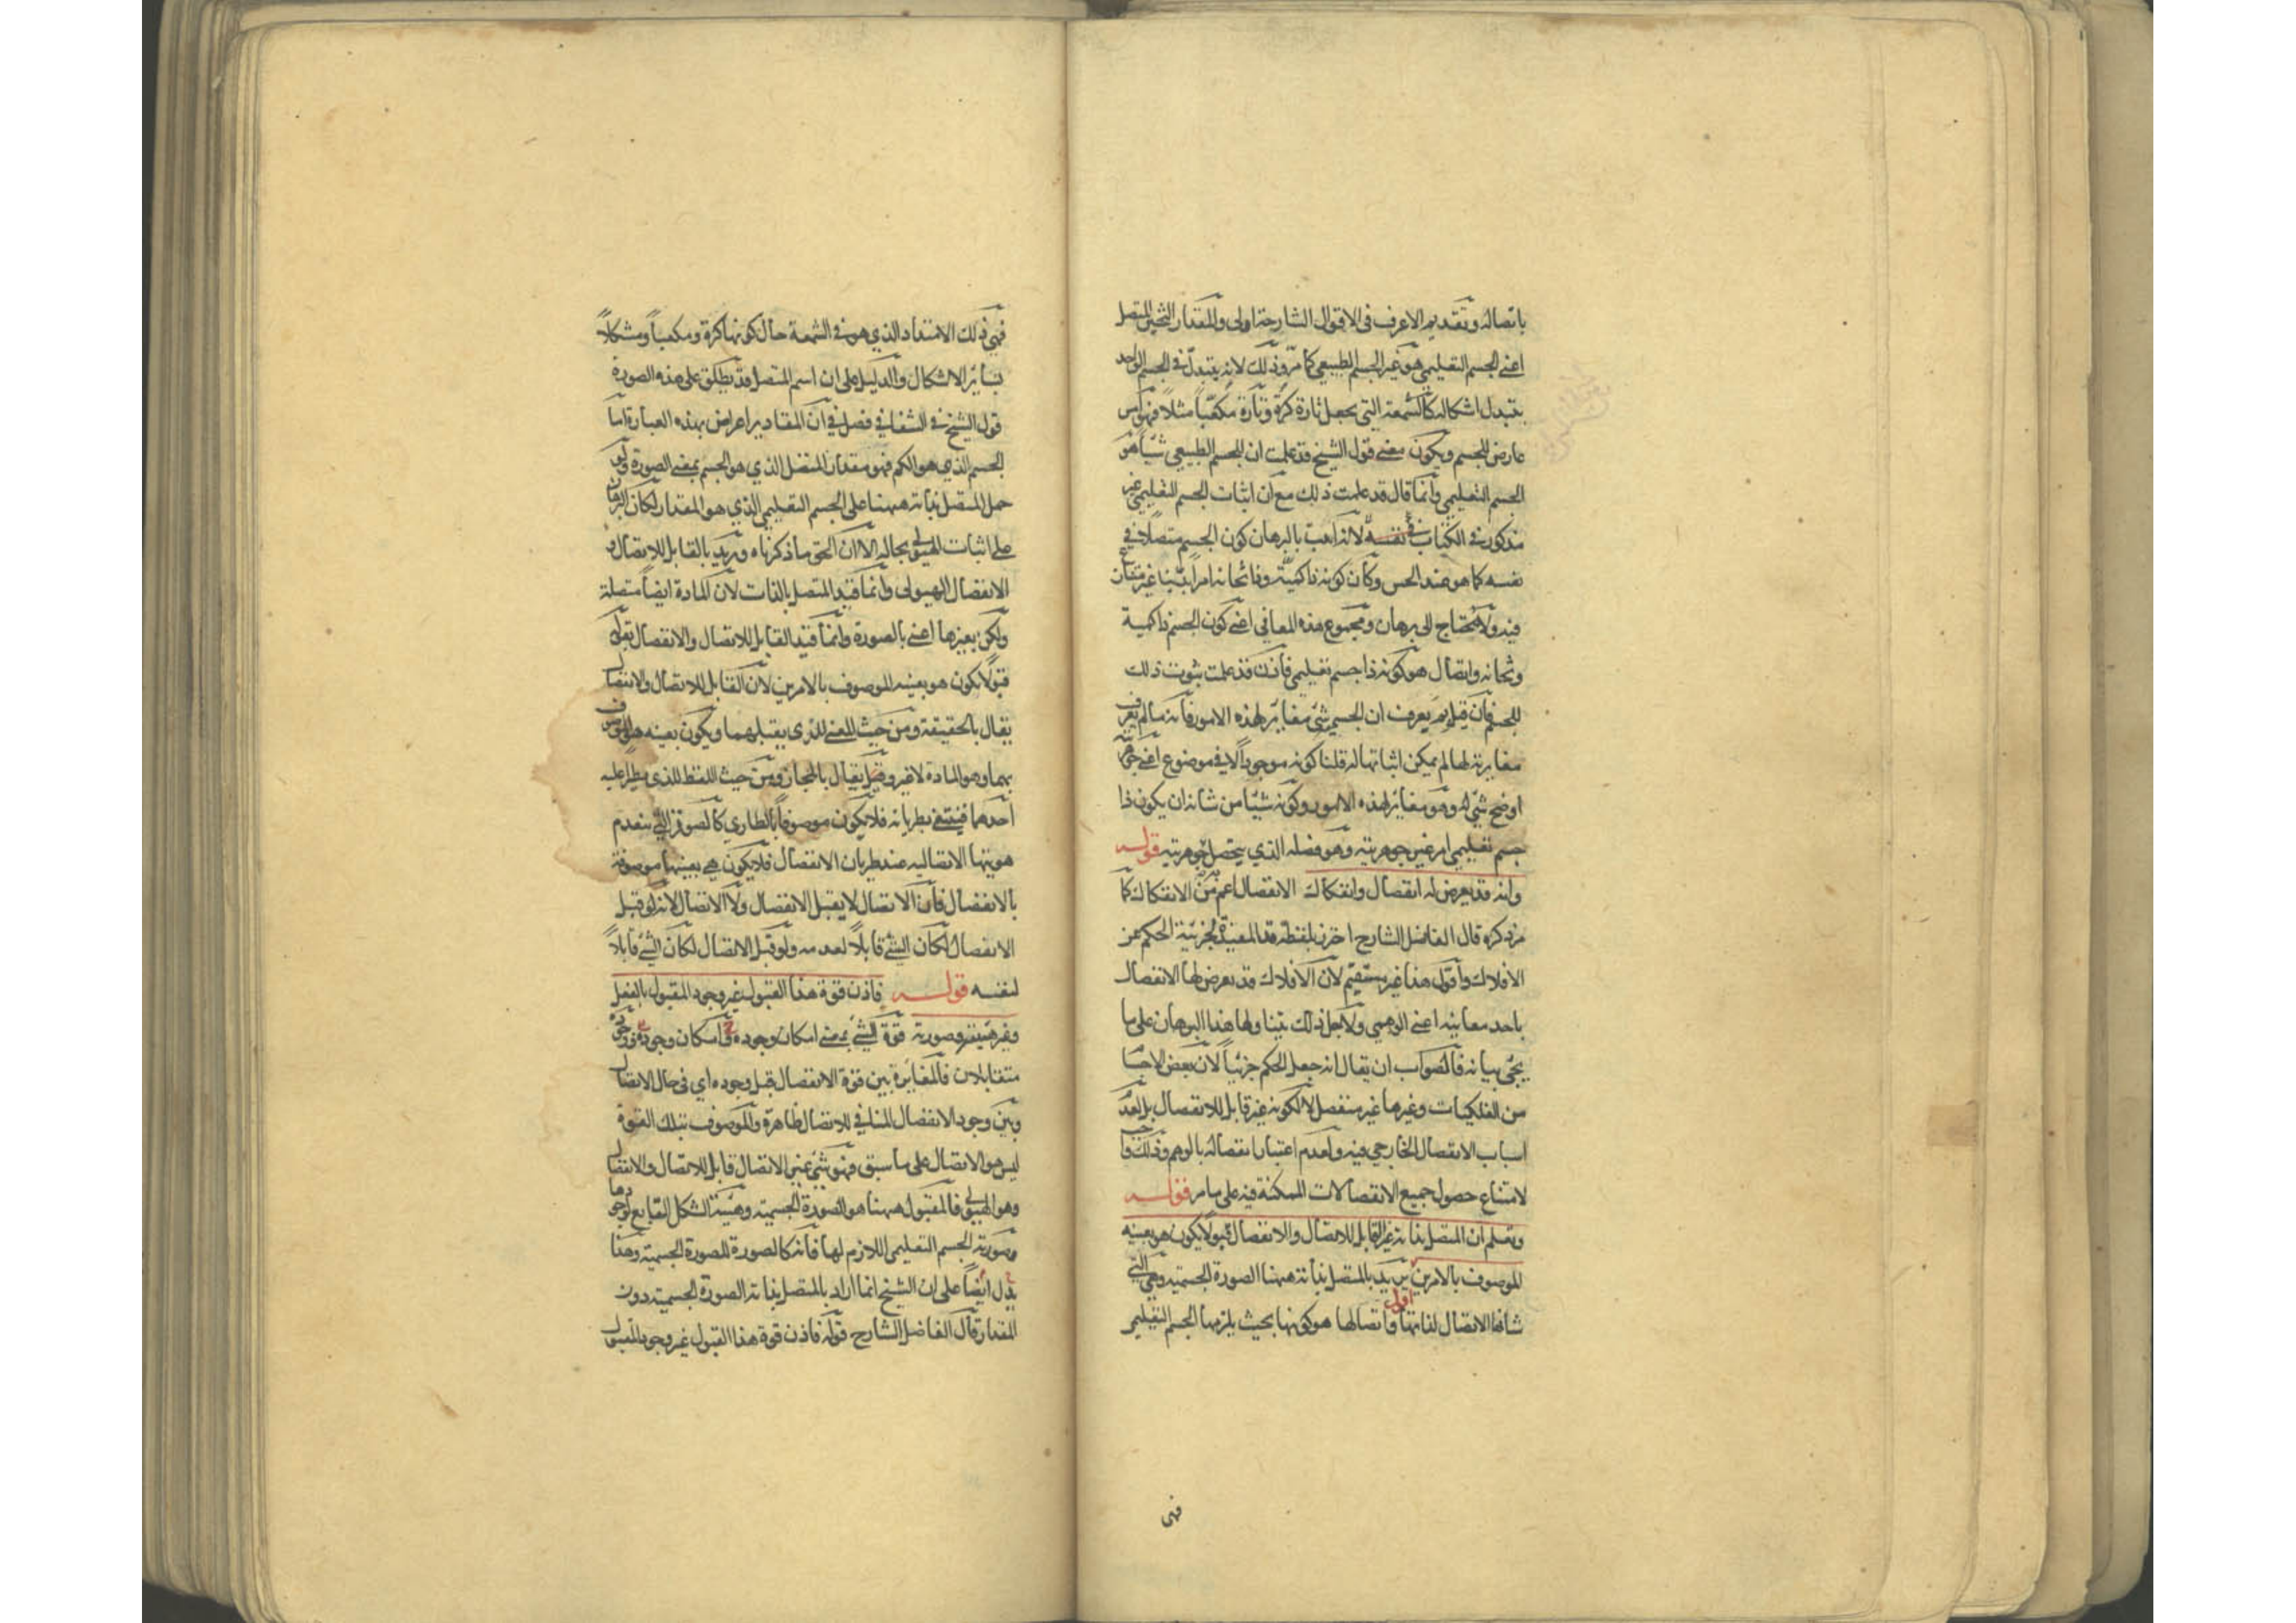 باتصاله وتقديم الاعرف فى الاقوال الشارحة اولى والمقدار الثخين المتصل
اعنى الجسم التعليمى هو غير الجسم الطبيعى كما مرّ وذلك لانه يتبدّل فى الجسم الواحد
بتبدل اشكاله كالشمعة التى يجعل تارة كرةً وتارة مكعّباً مثلاً فهو امر
عارض للجسم ويكون معنى قول الشيخ قد علمت ان للجسم الطبيعى شيئاً هو
الجسم التعليمى وانما قال قد علمت ذلك مع ان اثبات الجسم التعليمى غير
مذكور فى الكتاب لانه اثبت بالبرهان كون الجسم متصلاً فى
نفسه كما هو عند الحس وكان كونه ذا كمية وذا ثخانة امراً بيّنا غير متنازع
فيه ولا يحتاج الى برهان ومجموع هذه المعانى اعنى كون الجسم ذا كمية
وثخانه واتصال هو كونه ذا جسم تعليمى فاذن قد علمت ثبوت ذلك
للجسم فان قيل لم يعرف ان الجسم شئ مغاير لهذه الامور فانه ما لم يعرف
مغايرته لها لم يمكن اثباتها له قلنا كونه موجوداً لا فى موضوع اعنى جوهريته
اوضح شئ له وهو مغاير لهذه الامور وكونه شيئا من شانه ان يكون ذا
جسم تعليمى امر غير جوهريته وهو فصله الذى يتحصل جوهريته قولـه
وانه قد يعرض له انفصال وانفكاك الانفصال اعم من الانفكاك كما
مر ذكره قال الفاضل الشارح احترز بلفظة قد المفيدة لجزئية الحكم عن
الافلاك واقول هذا غير مستقيم لان الافلاك قد يعرض لها الانفصال
باحد معانيه اعنى الوهمى ولاجل ذلك يتناولها هذا البرهان على ما
يجئ بيانه فالصواب ان يقال انه جعل الحكم جزئياً لان بعض الاجسا
من الفلكيات وغيرها غير منفصل لا لكونه غير قابل للانفصال بل لعدم
اسباب الانفصال الخارجى فيه ولعدم اعتبار انفصاله بالوهم وذلك
لامتناع حصول جميع الانفصالات الممكنة فيه على ما مر قولـه
وتعلم ان المتصل بذاته غير القابل للاتصال والانفصال قبولاً يكون هو بعينه
الموصوف بالامرين يريد بالمتصل بذاته ههنا الصورة الجسمية وهى التى
شانها الاتصال لذاتها واتصالها هو كونها بحيث يلزمها الجسم التعليمى
اقول
فهى
فهى ذلك الامتداد الذى هو فى الشمعة حال كونها كرة ومكعباً ومشكلاً
بسائر الاشكال والدليل على ان اسم المتصل قد يطلق على هذه الصورة
قول الشيخ فى الشفا فى فصل فى ان المقادير اعراض بهذه العبارة اما
الجسم الذى هو الكم فهو مقدار المتصل الذى هو الجسم بمعنى الصورة ولو
حمل المتصل بذاته ههنا على الجسم التعليمى الذى هو المقدار لكان البرهان
على اثبات الهيولى بحاله الا ان الحق ما ذكرناه ويريد بالقابل للاتصال و
الانفصال الهيولى وانما قيد المتصل بالذات لان المادة ايضاً متصلة
ولكن بغيرها اعنى بالصورة وانما قيد القابل للاتصال والانفصال بقوله
قبولاً يكون هو بعينه الموصوف بالامرين لان القابل للاتصال والانفصال
يقال بالحقيقة ومن حيث المعنى للذى يقبلهما ويكون بعينه هو الموصوف
بهما وهو المادة لا غير وقيل يقال بالمجاز ومن حيث اللفظ للذى يطرأ عليه
احدهما فينتفى بطريانه فلا يكون موصوفاً بالطارى كالصورة التى ينعدم
هويتها الاتصالية عند طريان الانفصال فلا يكون هى بعينها موصوفة
بالانفصال فاذن الاتصال لا يقبل الانفصال ولا الاتصال لانه لو قبل
الانفصال لكان الشئ قابلاً لعدمه ولو قبل الاتصال لكان الشئ قابلاً
لنفسه قولـه فاذن قوة هذا القبول غير وجود المقبول بالفعل
وغير هيئته وصورته قوة الشئ بمعنى امكان وجوده وامكان وجوده ووجوده
متقابلان فالمغايرة بين قوة الانفصال قبل وجوده اى فى حال الاتصال
وبين وجود الانفصال المنافى للاتصال ظاهرة والموصوف بتلك القوة
ليس هو الاتصال على ما سبق فهو شئ غير الاتصال قابل للاتصال والانفصال
وهو الهيولى فالمقبول ههنا هو الصورة الجسمية وهيئته الشكل التابع لوجودها
وصورته الجسم التعليمى اللازم لها فانه كالصورة للصورة الجسمية وهذا
يدل ايضاً على ان الشيخ انما اراد بالمتصل بذاته الصورة الجسمية دون
المقدار قال الفاضل الشارح قوله فاذن قوة هذا القبول غير وجود المقبول